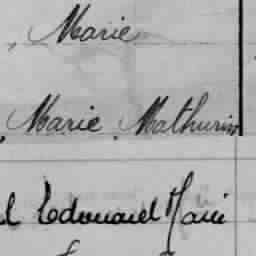 Marie
Marie Mathurin
Edouard Marie